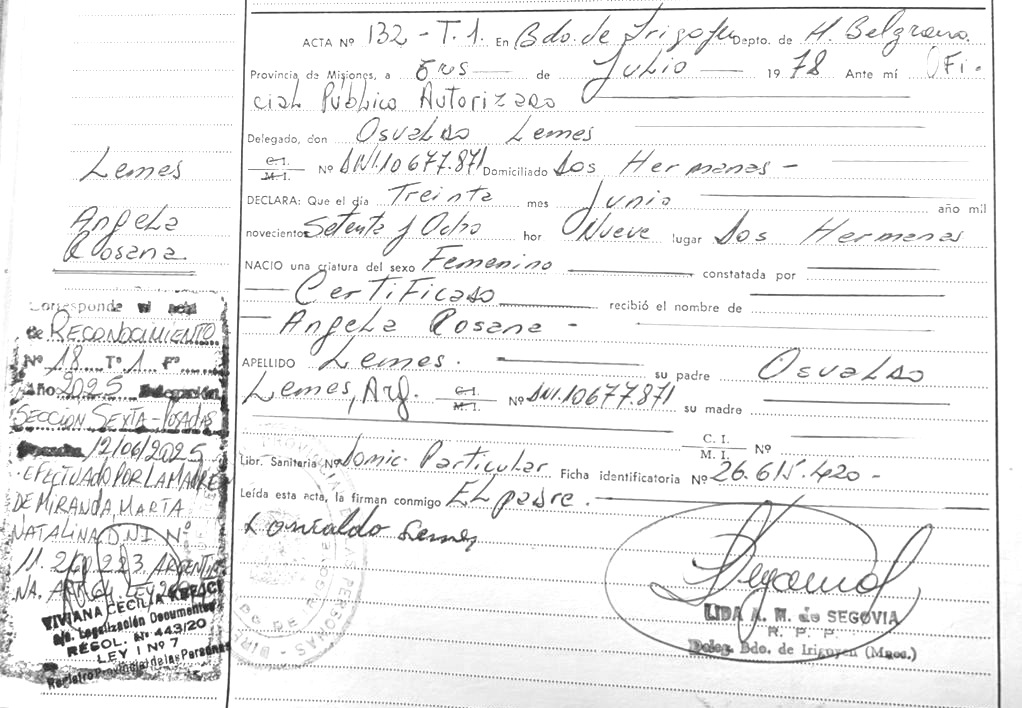 Lemes
Angela
Rosana
Corresponde al acta
de RECONOCIMIENTO
Nº 18 Tº 1 Fº
Año 2025 Delegación
SECCION SEXTA-POSADAS
12/06/2025
EFECTUADO POR LA MADRE
DE MIRANDA, MARTA
NATALINA D.N.I. Nº
11.260.223. ARGENTI
NA.
VIVIANA CECILIA
a/c. Legalización Documentos
RESOL. Nº 443/20
LEY I Nº 7
Registro Provincial de las Personas
ACTA Nº 132 - T.1. En Bdo. de Irigoyen Depto. de M. Belgrano
Provincia de Misiones, a tres de Julio 1978 Ante mí Ofi-
cial Público Autorizado
Delegado, don Osvaldo Lemes
C.I. M.I. Nº DNI.10677.871 Domiciliado Dos Hermanas -
DECLARA: Que el día Treinta mes Junio año mil
novecientos Setenta y Ocho hor Nueve lugar Dos Hermanas
NACIO una criatura del sexo Femenino constatada por
Certificado recibió el nombre de
Angela Rosana -
APELLIDO Lemes. su padre Osvaldo
Lemes, Arg. C.I. M.I. Nº DNI.10677.871 su madre
C.I. M.I. Nº
Libr. Sanitaria Nº Domic. Particular Ficha identificatoria Nº 26.615.420 -
Leída esta acta, la firman conmigo El padre.
Lemes
LIDA A. M. de SEGOVIA
R. P. P.
Deleg. Bdo. de Irigoyen (Mnes.)